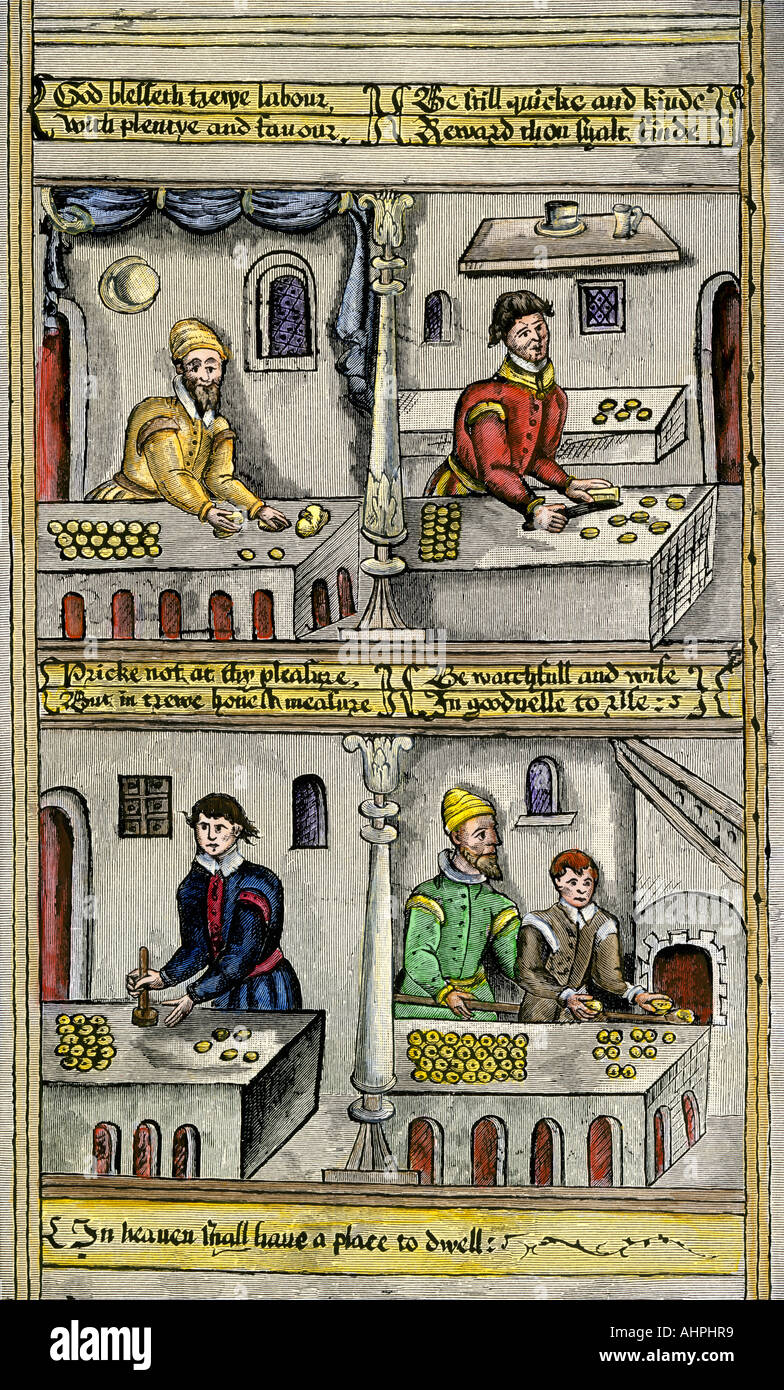 God blesseth trewe labour,
With plentye and favour,
Be still quicke and kinde
Reward thou shalt finde
Pricke not at thy pleasure,
But in trewe honest measure
Be watchfull and wise
In goodnesse to rise:
In heaven shall have a place to dwell:
a
alamy
Image ID: AHPHR9
www.alamy.com